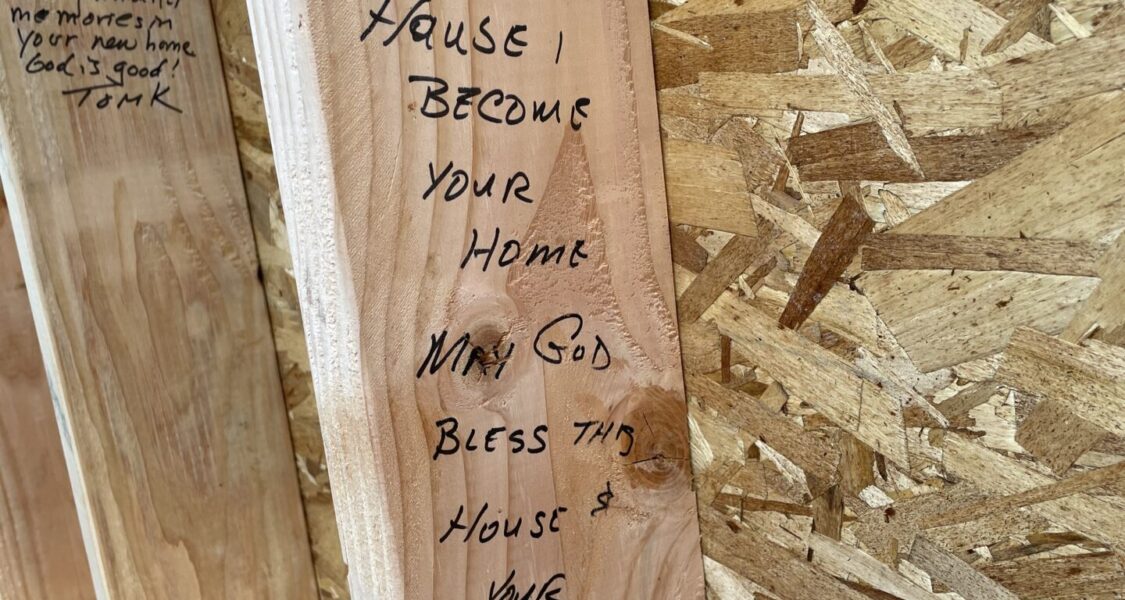 memories in
your new home
God is good!
Tom K
House,
BECOME
YOUR
HOME
MAY GOD
BLESS THIS
HOUSE &
YOUR